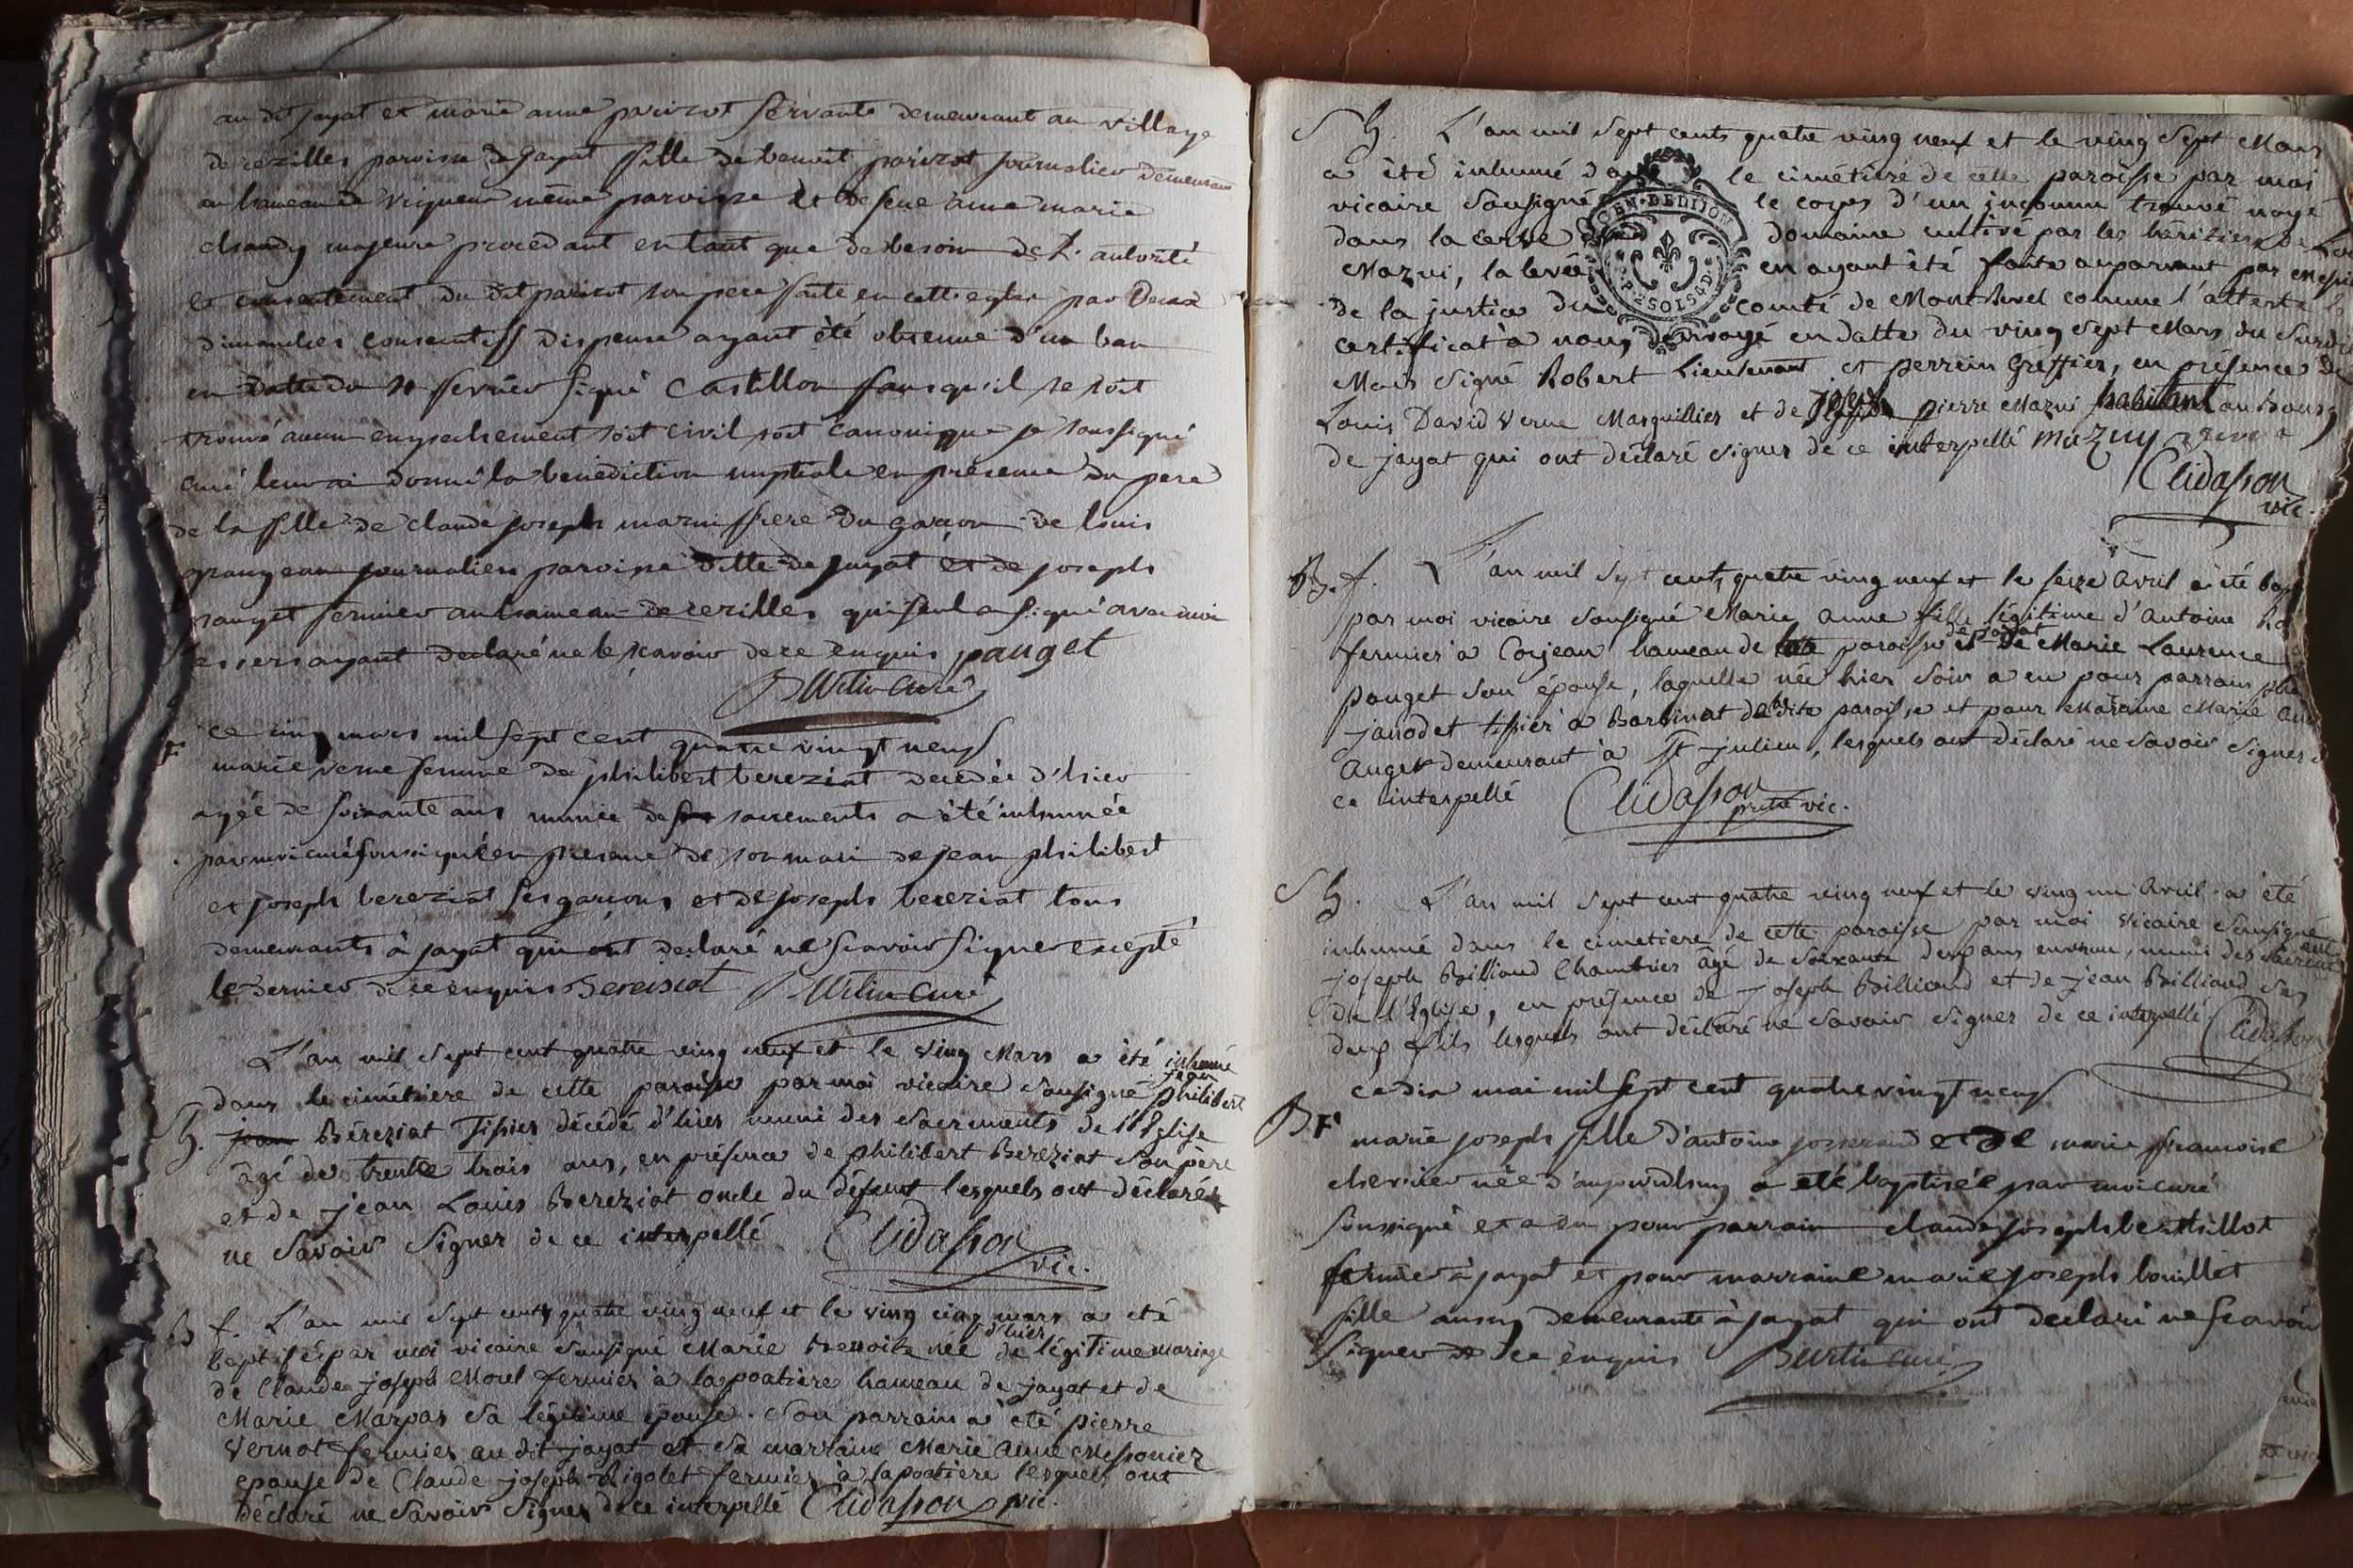 au dit jayat et marie anne parizot servante demeurant au village
de cezilles paroisse de jayat fille de benoit parizot journalier demeurant
au hameau de même paroisse et de feue anne marie
chandy majeure procedant en tant que de besoin de l'autorité
et consentement du dit parizot son pere faite en cette eglise par deux
dimanches consecutiff dispense ayant été obtenue d'un ban
en datte du fevrier signé Castillon sans qu'il se soit
trouvé aucun enpechement soit civil soit canonique je soussigné
curé leur ai donné la benediction nuptiale en présence du pere
de la fille de claude joseph mazui frere du garçon de louis
grangean journalier paroisse ditte de jayat et de joseph
pauget fermier au hameau de cezilles qui seul a signé avec moi
ayant declaré ne le scavoir de ce enquis pauget
Burtin curé
F ce cinq mars mil sept cent quatre vingt neuf
marie verne femme de philibert bereziat decedée d'hier
agée de soixante ans munie des sacrements a été inhumée
par moi curé soussigné en presence de son mari de jean philibert
et joseph bereziat ses garçons et de joseph bereziat tous
demeurants à jayat qui ont declaré ne scavoir signer excepté
le dernier de ce enquis Bereisiat Burtin curé
L'an mil sept cent quatre ving neuf et le ving Mars a été inhumé
dans le cimétiere de cette paroisse par moi vicaire sousigné jean philibert
h. jean Béreziat Tissier décédé d'hier muni des sacrements de l'Eglise
âgé de trente trois ans, en présence de philibert Bereziat son père
et de jean Louis Bereziat oncle du défunt lesquels ont déclarés
ne Savoir Signer de ce interpellé Clidasson vic.
B f. L'an mil sept cents quatre ving neuf et le ving cinq mars a été
baptisée par moi vicaire sousigné Marie Benoite née d'hier de légitime mariage
de Claude joseph Morel fermier à la poatiere hameau de jayat et de
Marie Marpas sa légitime épouse. Son parrain a été pierre
Vernot fermier au dit jayat et sa marraine Marie Anne Messonier
epouse de Claude joseph Rigolet fermier à lapoatiere lesquels ont
déclaré ne Savoir Signer de ce interpellé Clidasson vic.
S h. L'an mil Sept cents quatre ving neuf et le ving Sept Mars
a été inhumé dans le cimétiere de cette paroisse par moi
vicaire Sousigné le corps d'un inconnu trouvé noyé
dans la serve domaine cultivé par les héritiers de
Mazui, la levée en ayant été faite auparavant par
de la justice du comté de Montrevel comme l'atteste le
certificat à nous envoyé en datte du ving Sept Mars du Susdit
Mois signé Robert Lieutenant et perrein Greffier, en présence de
Louis David Verne Marguillier et de joseph pierre Mazui habitant au bourg
de jayat qui ont déclaré signer de ce interpellé Mazuy
Clidasson
vic.
GEN. DE DIJON
B. f. L'an mil Sept cents quatre ving neuf et le seize Avril a été
par moi vicaire Sousigné Marie Anne fille légitime d'Antoine
fermier a Corjean hameau de cette paroisse de jayat et de Marie Laurence
Pauget son épouse, laquelle née hier soir a eu pour parrain
janodet tissier a Barbinat de dite paroisse et pour Maraine Marie
Auger demeurant à St julien, lesquels ont déclaré ne Savoir Signer
ce interpellé Clidasson
pretre vic.
S h. L'an mil Sept cent quatre ving neuf et le ving un Avril a été
inhumé dans le cimetiere de cette paroisse par moi vicaire sousigné
joseph Billioud Chambrier âgé de soixante deux ans environ, muni des Sacrements
de l'Eglise, en présence de joseph Billioud et de jean Billioud ses
deux fils lesquels ont déclaré ne Savoir Signer de ce interpellé Clidasson
ce dix mai mil sept cent quatre vingt neuf
B F marie joseph fille d'antoine josserand et de marie francoise
chevrier née d'aujourdhuy a eté baptisée par moi curé
soussigné et a eu pour parrain claude joseph berthillot
fermier à jayat et pour marraine marie joseph bouillet
fille aussy demeurante à jayat qui ont declaré ne scavoir
signer de ce enquis Burtin curé